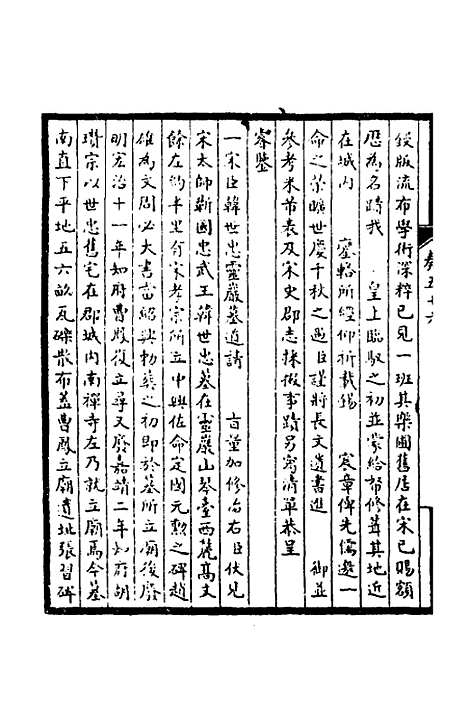 授版流布學術深粹已見一班其樂圃舊居在宋已賜額
恩為名蹟我 皇上臨馭之初並蒙給帑修葺其地近
在城內 鑾輅所經仰祈載錫 宸章俾先儒邀一
命之榮曠世慶千秋之遇臣謹將長文遺書進 御並
參考米芾表及宋史郡志採做事蹟另寫清單恭呈
睿鑒
一宋臣韓世忠靈巖墓道請 旨量加修治右臣伏見
宋太師蘄國忠武王韓世忠墓在靈巖山琴臺西麓高文
餘左約半里有宋孝宗所立中興佐命定國元勲之碑趙
雄為文周必大書當紹興勅葬之初即於墓所立廟後廢
明宏治十一年知府曹鳳復立尋又廢嘉靖二年知府胡
瓚宗以世忠舊宅在郡城內南禪寺左乃就立廟焉今墓
南直下平地五六畝瓦礫散布蓋曹鳳立廟遺址張習碑
奏五十六